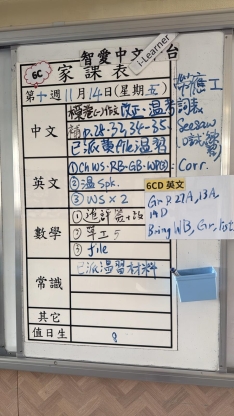 智愛中文 台
i-Learner
6C 家課表
第十週11月14日(星期五)
中文
改正、溫考
補p.28-32,34-35、
已派賽File溫習
詞表
seesaw
英文
①Ch WS-RB-GB-WP(3)
Corr.
②溫Spk.
③WS×2
6CD 英文
Gr.P.27A, 13A,
14D
Bring WB, Gr, Pet
數學
①進評
②單工5
③file
常識
已派溫習材料
其它
值日生
8